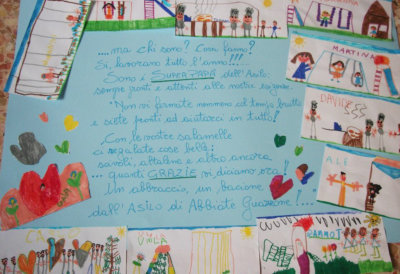 ....ma chi sono? Cosa fanno?
Sì, lavorano tutto l'anno!!!!
Sono i SUPER PAPÀ dell'Asilo:
sempre pronti e attenti alle nostre esigenze.
Non vi fermate nemmeno col tempo brutto
e siete pronti ad aiutarci in tutto!
Con le vostre salamelle
ci regalate cose belle:
tavoli, altalene e altro ancora
... quanti GRAZIE vi diciamo ora!
Un abbraccio, un bacione,
dall'Asilo di Abbiate Guazzone!...
MARTINA
DAVIDE
ALE